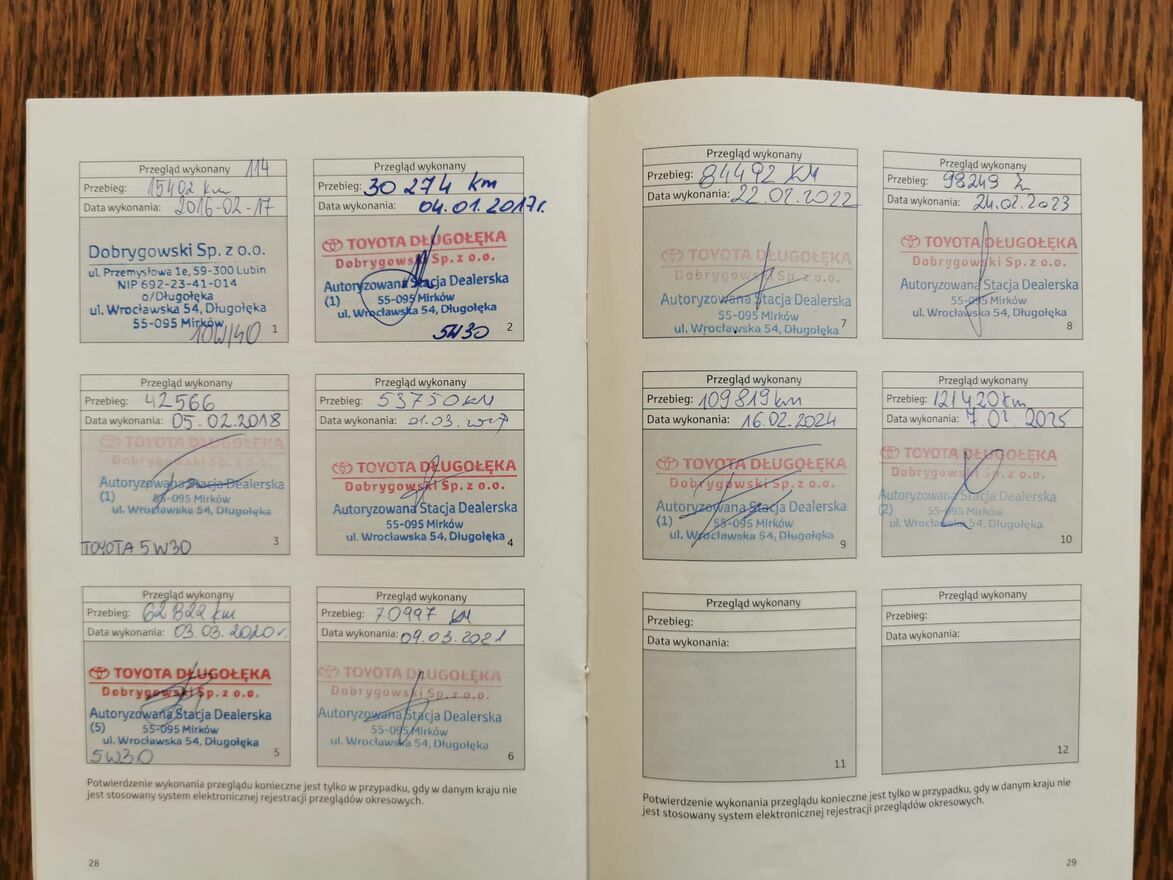 Przegląd wykonany 114
Przebieg: 15402 km
Data wykonania: 2016-02-17
Dobrygowski Sp. z o.o.
ul. Przemysłowa 1e, 59-300 Lubin
NIP 692-23-41-014
o/Długołęka
ul. Wrocławska 54, Długołęka
55-095 Mirków
10W/40
1
Przegląd wykonany
Przebieg: 30 274 km
Data wykonania: 04.01.2017r.
TOYOTA DŁUGOŁĘKA
Dobrygowski Sp. z o.o.
Autoryzowana Stacja Dealerska
(1) 55-095 Mirków
ul. Wrocławska 54, Długołęka
5W30
2
Przegląd wykonany
Przebieg: 42566
Data wykonania: 05.02.2018
TOYOTA DŁUGOŁĘKA
Dobrygowski Sp. z o.o.
Autoryzowana Stacja Dealerska
(1) 55-095 Mirków
ul. Wrocławska 54, Długołęka
TOYOTA 5W30
3
Przegląd wykonany
Przebieg: 53750 KM
Data wykonania: 01.03.
TOYOTA DŁUGOŁĘKA
Dobrygowski Sp. z o.o.
Autoryzowana Stacja Dealerska
55-095 Mirków
ul. Wrocławska 54, Długołęka
4
Przegląd wykonany
Przebieg: 62822 km
Data wykonania: 03.03.2020r.
TOYOTA DŁUGOŁĘKA
Dobrygowski Sp. z o.o.
Autoryzowana Stacja Dealerska
(5) 55-095 Mirków
ul. Wrocławska 54, Długołęka
5W30
5
Przegląd wykonany
Przebieg: 70997 KM
Data wykonania: 09.03.2021
TOYOTA DŁUGOŁĘKA
Dobrygowski Sp. z o.o.
Autoryzowana Stacja Dealerska
55-095 Mirków
ul. Wrocławska 54, Długołęka
6
Potwierdzenie wykonania przeglądu konieczne jest tylko w przypadku, gdy w danym kraju nie
jest stosowany system elektronicznej rejestracji przeglądów okresowych.
28
Przegląd wykonany
Przebieg: 84492 KM
Data wykonania: 22.02.2022
TOYOTA DŁUGOŁĘKA
Dobrygowski Sp. z o.o.
Autoryzowana Stacja Dealerska
55-095 Mirków
ul. Wrocławska 54, Długołęka
7
Przegląd wykonany
Przebieg: 98249
Data wykonania: 24.02.2023
TOYOTA DŁUGOŁĘKA
Dobrygowski Sp. z o.o.
Autoryzowana Stacja Dealerska
55-095 Mirków
ul. Wrocławska 54, Długołęka
8
Przegląd wykonany
Przebieg: 109819 km
Data wykonania: 16.02.2024
TOYOTA DŁUGOŁĘKA
Dobrygowski Sp. z o.o.
Autoryzowana Stacja Dealerska
(1) 55-095 Mirków
ul. Wrocławska 54, Długołęka
9
Przegląd wykonany
Przebieg: 121420 km
Data wykonania: 7.02.2025
TOYOTA DŁUGOŁĘKA
Dobrygowski Sp. z o.o.
Autoryzowana Stacja Dealerska
(2) 55-095 Mirków
ul. Wrocławska 54, Długołęka
10
Przegląd wykonany
Przebieg:
Data wykonania:
11
Przegląd wykonany
Przebieg:
Data wykonania:
12
Potwierdzenie wykonania przeglądu konieczne jest tylko w przypadku, gdy w danym kraju nie
jest stosowany system elektronicznej rejestracji przeglądów okresowych.
29